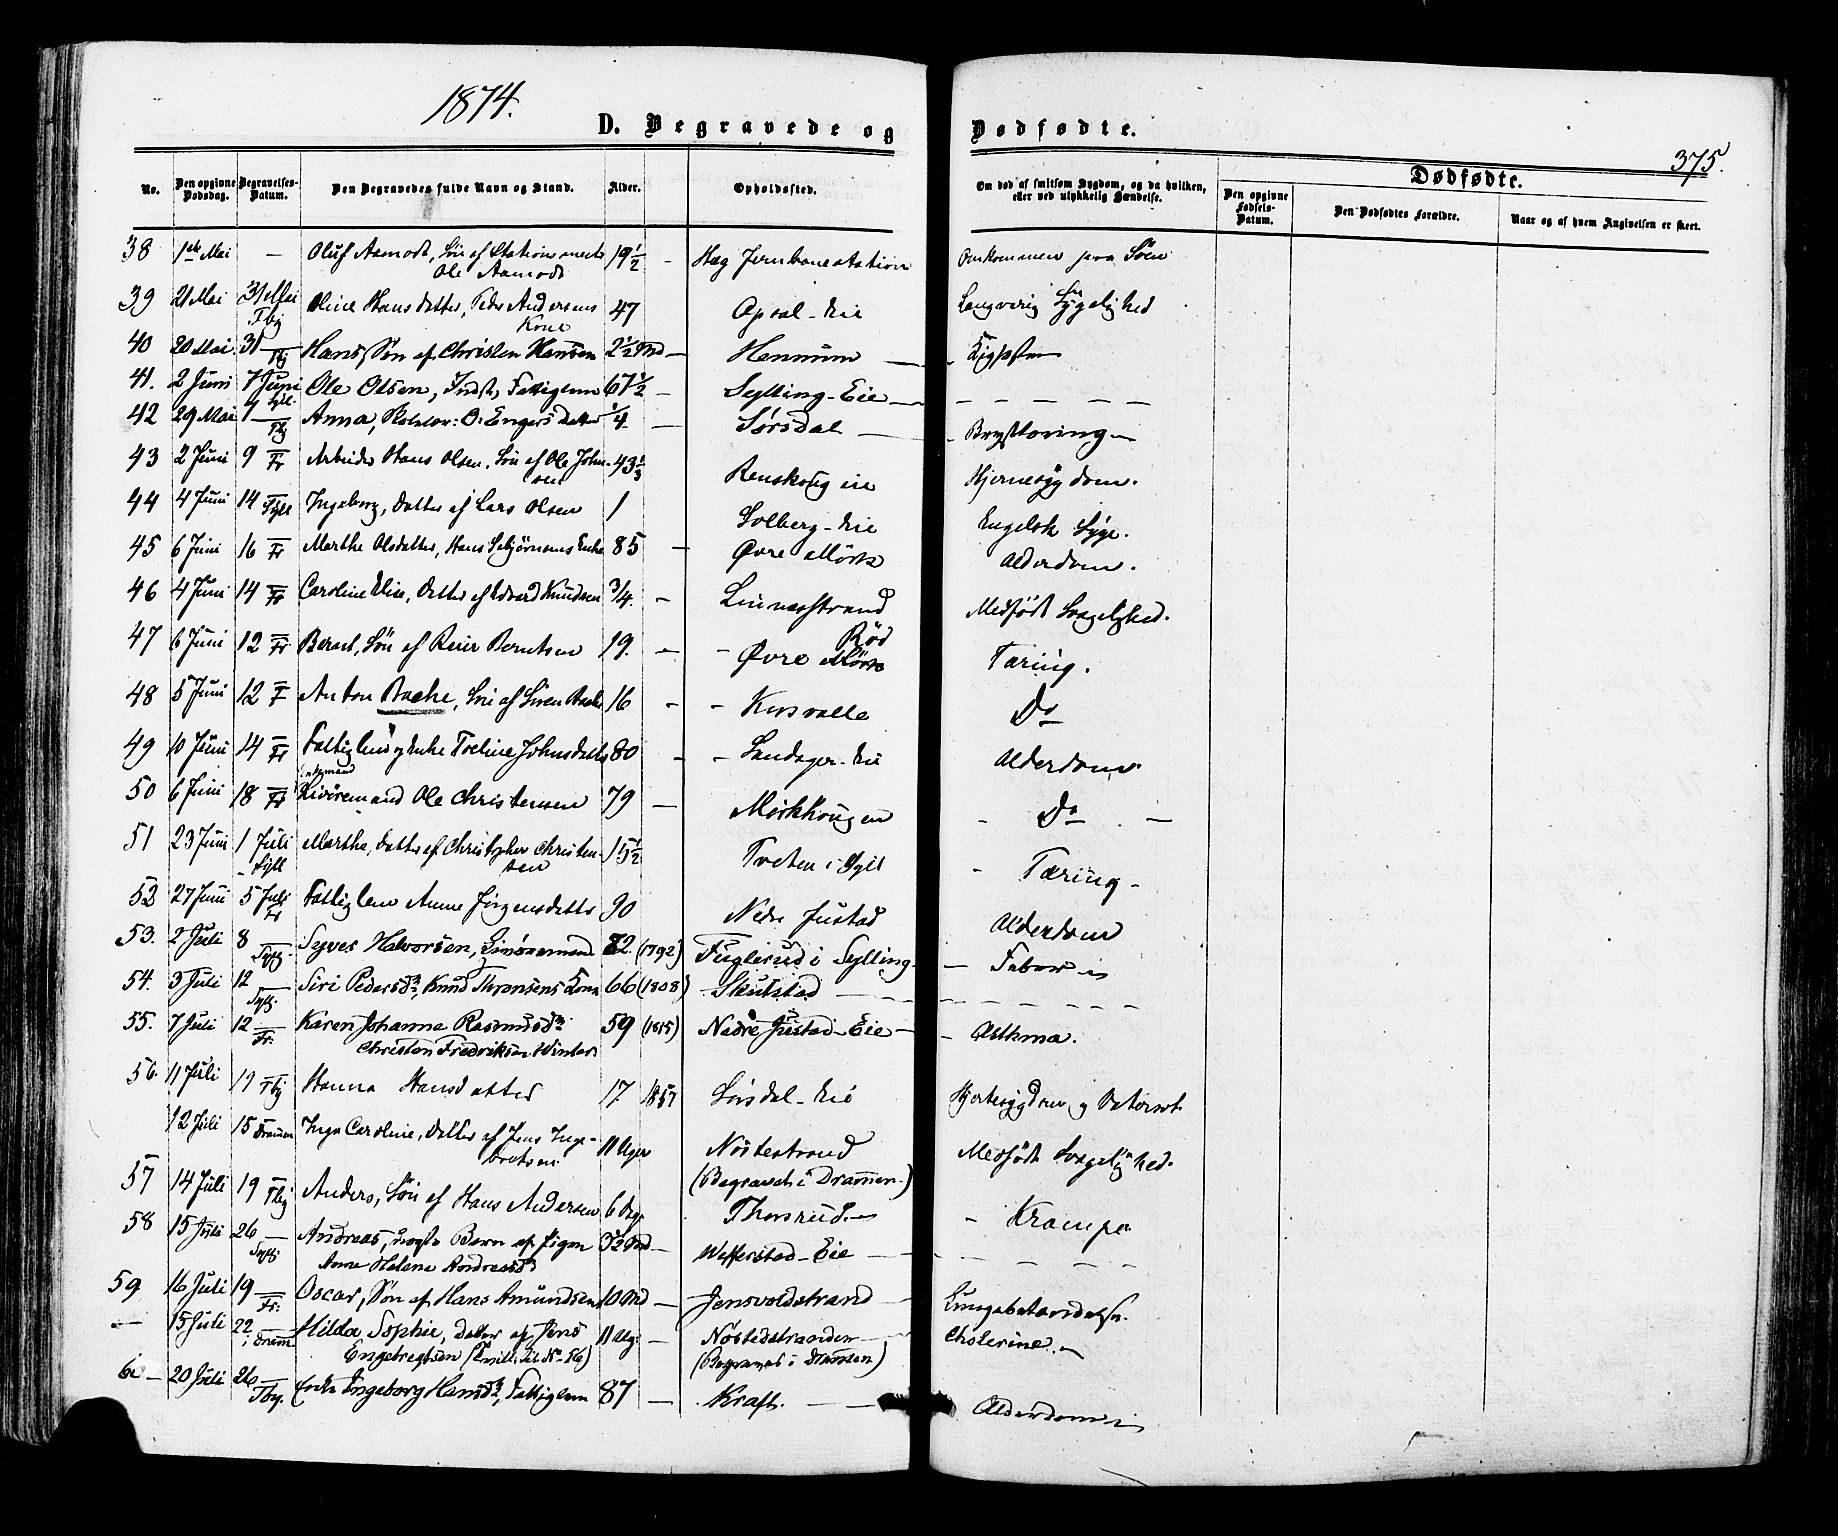 1874.
D. Begravede og Dødfødte.
375.
No. Den opgivne Dødsdag. Begravelses-Datum. Den Begravedes fulde Navn og Stand. Alder. Opholdssted. Om død af smitsom Sygdom, og da hvilken, eller ved ulykkelig Hændelse. Dødfødte.
Den opgivne Fødsels-Datum. Den Dødfødtes Forældre. Naar og af hvem Angivelsen er skeet.
38 1ste Mai — Oluf Aamodt, Søn af Stationsmester 19½ - Hæg Jernbanestation Omkommen paa Søen
Ole Aamodt
39 21 Mai 31 Mai Oline Hansdatter, Peder Andersens 47 Opsal-Eie Langvarig Sygelighed
Tbj Kone
40 20 Mai 31 — Tbj Hans, Søn af Christen Hansen 2½ Md — Hennum — Kighoste
41. 2 Juni 7 Juni Ole Olsen, Inds, Fattiglem 67½ — Sylling-Eie — — — — —
Syll.
42 29 Mai 7 — Tbj Anna, O. Engers Datter ¼ — Sørsdal — Brystbetændelse
43 2 Juni 9 — Fr Arbeider Hans Olsen, Søn af Ole John- 43⅓ Renskoug eie Hjernesygdom.
sen
44 4 Juni 14 — Syll Ingeborg, Datter af Lars Olsen 1 Solberg-Eie Engelsk Syge.
45 6 Juni 16 — Fr Marthe Olsdatter, Hans Enke 85 — Øvre Mørk Alderdom.
46 4 Juni 14 — Fr Caroline Elise, Datter af Edvard Knudsen ¾. - Linnesstrand Medfødt Svagelighed.
47 6 Juni 12 — Fr Bernt, Søn af Reier Berntsen 19. - - Øvre Mørk Rød Tæring.
48 5 Juni 12 — F Anton Bache, Søn af Søren Bache 16 - - Korsvalle Do
49 10 Juni 14 — Fr Fattiglem og Enke Johnsdatter 80 - - Landager-Eie Alderdom
50 6 Juni 18 — Fr Ole Christensen 79 — Mørkkougen - Do . —
51 23 Juni 1 Juli Marthe, Datter af Christopher Christen- 15½ Tveten i Syll - Tæring -
- Syll sen
52 27 Juni 5 Juli Fr Fattiglem Anne Jørgensdatter 90 Nedre Justad Alderdom
53. 2 Juli 8 — Syll. Syver Halvorsen, 82. (1792) Fuglerud i Sylling — Feber
54. 3 Juli 12 — Syll. Siri Pedersdr, Knud Thronsens Kone 66 (1808) - Skutstad — — — — —
55. 7 Juli 12 — Fr. Karen Johanne Rasmusdr 59 (1815) Nedre Justad-Eie — - Asthma.
Christen Fredriksen Winter
56. 11 Juli 19 — Tbj Hanna Hansdatter 17 1857 Sørsdal-Eie Hjertesygdom og Vatersot
12 Juli 15 Drammen Inga Caroline, Datter af Jens Inge- 11 Uger Nøstestrand Medfødt Svagelighed.
bretsen (Begravet i Drammen.)
57 14 Juli 19 — Tbj Anders, Søn af Hans Andersen 6 Dag. Thorsrud. — - Krampe
58 15 Juli 26 — Syll. Andreas, uægte Barn af Pigen 3½ Md — Wefferstad-Eie — — — —
Anne Helene Andreasdr
59 16 Juli 19 — Fr. Oscar, Søn af Hans Amundsen 10 Md — Jensvoldstrand — Lungebetændelse.
— 15 Juli 22 — Dramn Hilda Sophie, Datter af Jens 11 Ug. — Nøstedstranden — Cholerine. —
Engebregtsen (Tvill: til No 56) (Begravet i Drammen)
60 — 20 Juli 26 — Tbg. Enke Ingeborg Hansdr, Fattiglem 87 — Kraft. — — Alderdom